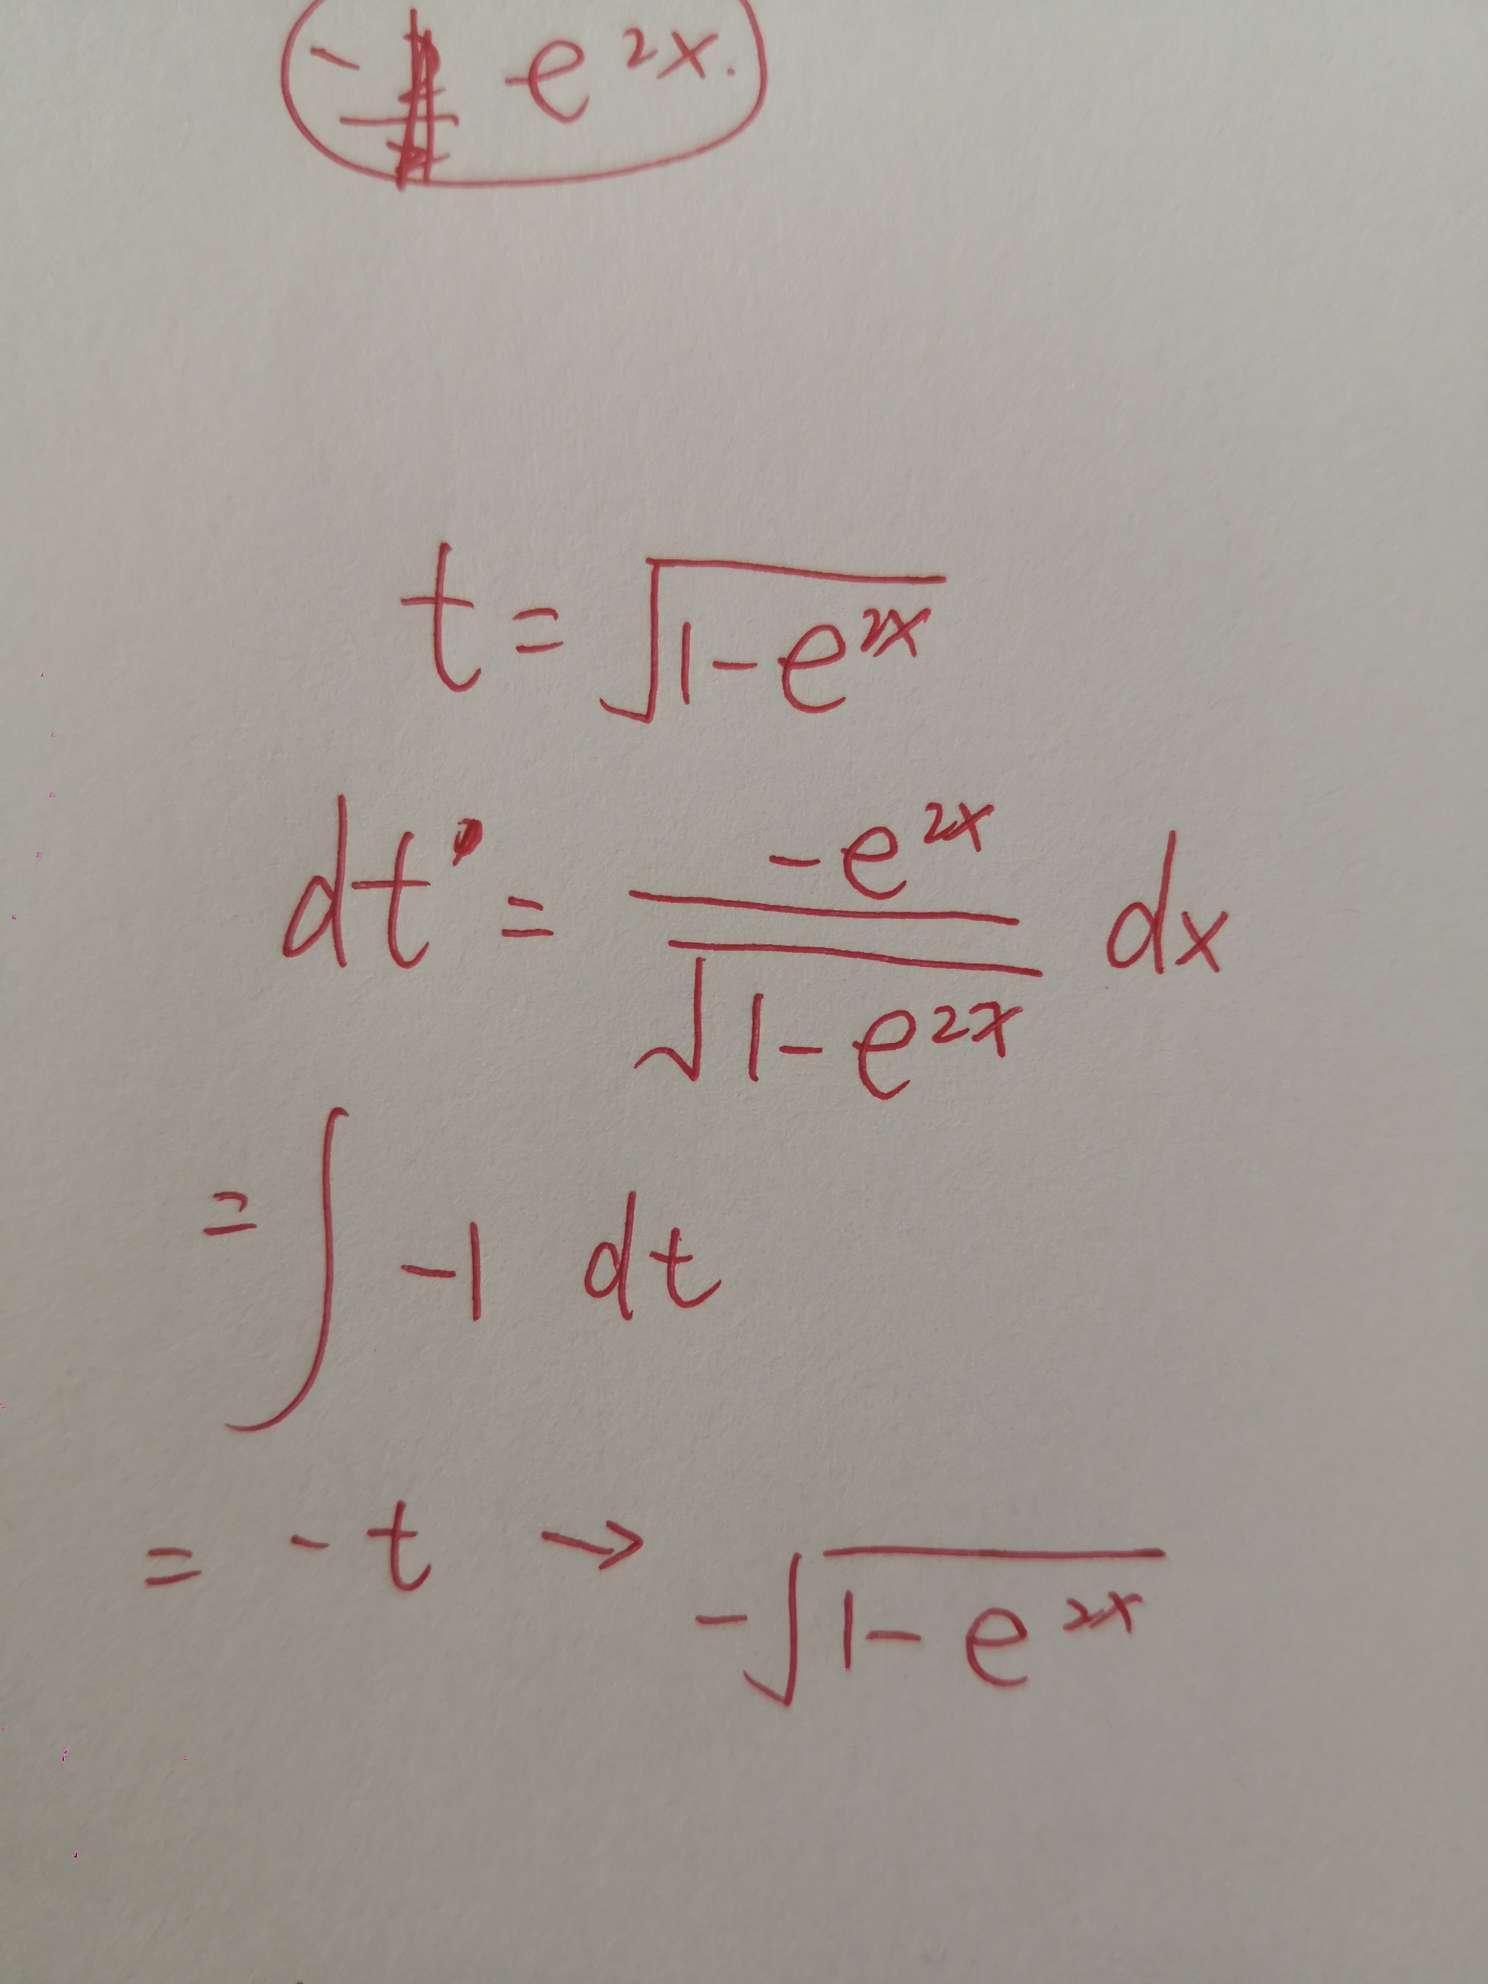 - e^{2x}.
t = √(1-e^{2x})
dt = \frac{-e^{2x}}{√(1-e^{2x})} dx
= ∫ -1 dt
= -t → -√(1-e^{2x})